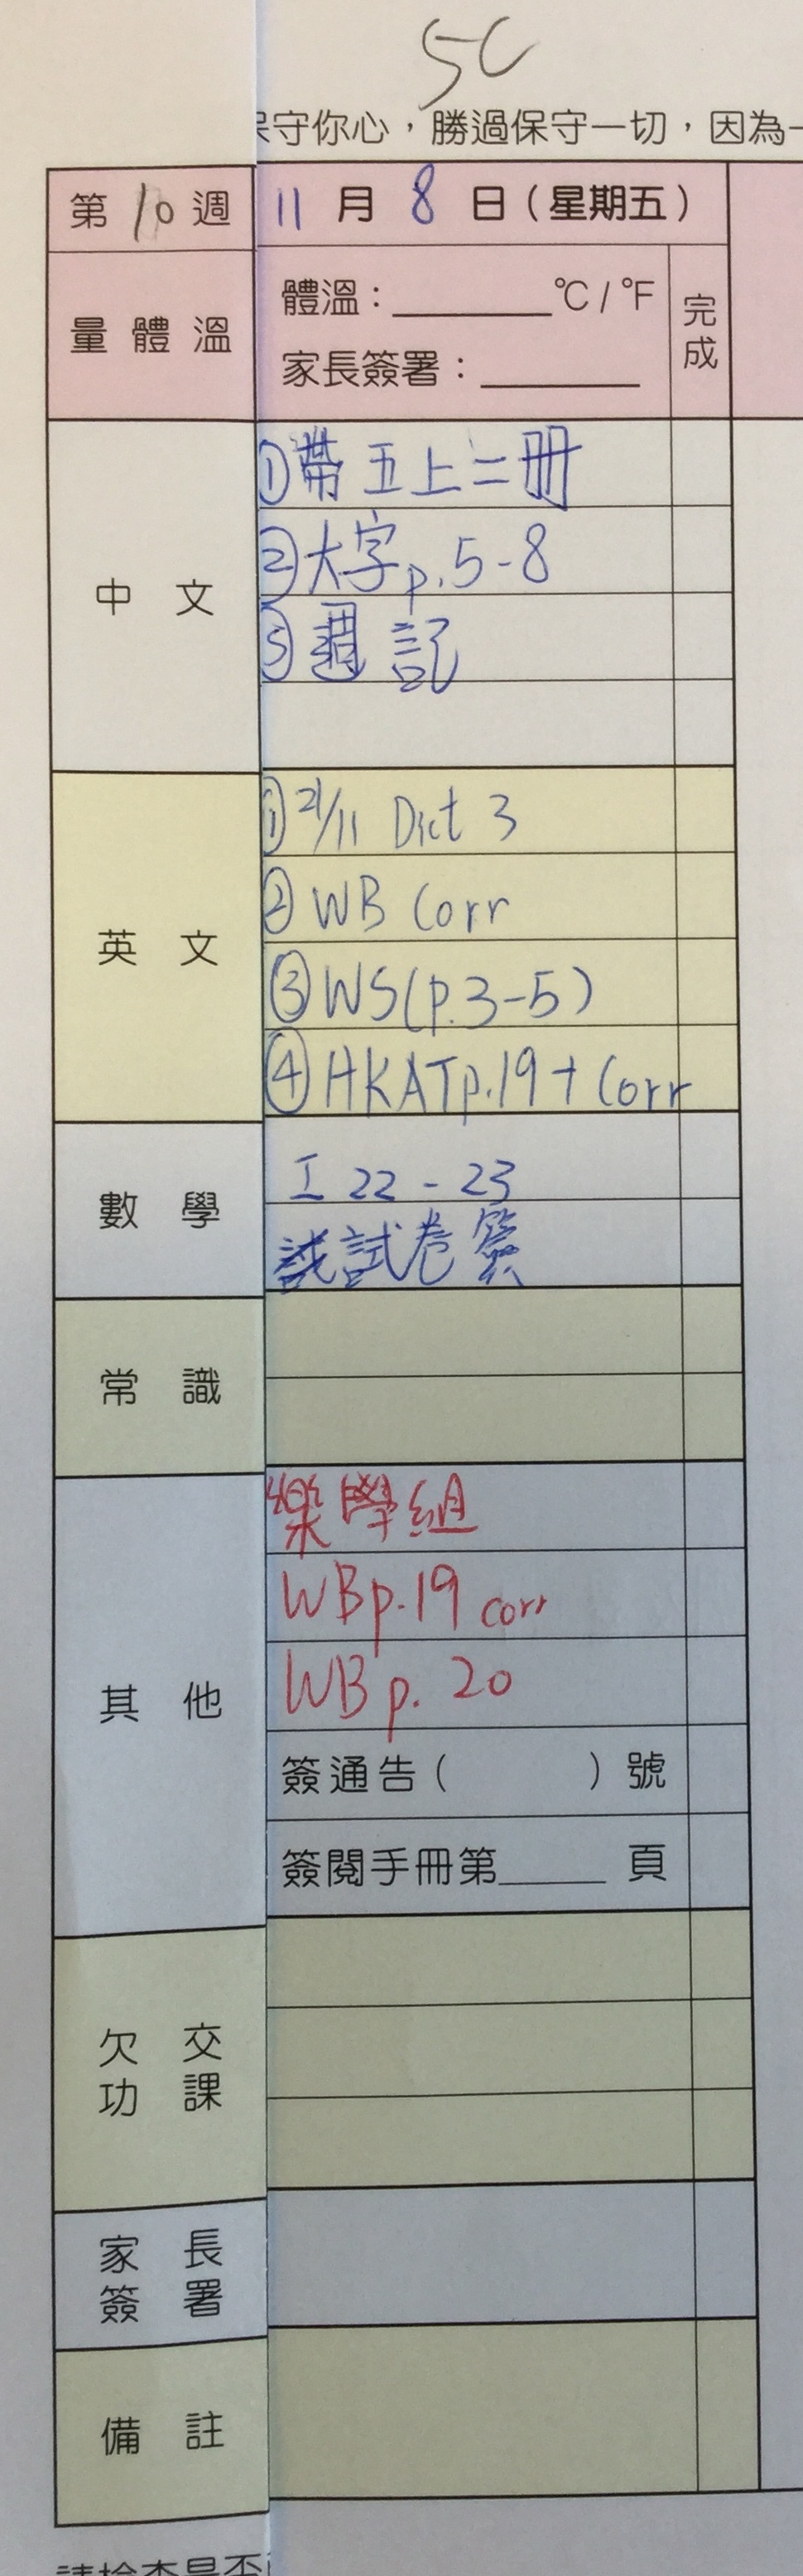 5C
守你心，勝過保守一切，因為
第10週 11月8日（星期五）
量體溫 體溫：______°C / °F 完成
家長簽署：______
中文 ①帶五上二冊
②大字p.5-8
③週記
英文 ①21/11 Dict 3
②WB Corr
③WS(p.3-5)
④HKATp.19+Corr
數學 I 22-23
試卷簽
常識
其他 樂學組
WBp.19 corr
WB p.20
簽通告（ ）號
簽閱手冊第______頁
欠交功課
家長簽署
備註
請檢查是否